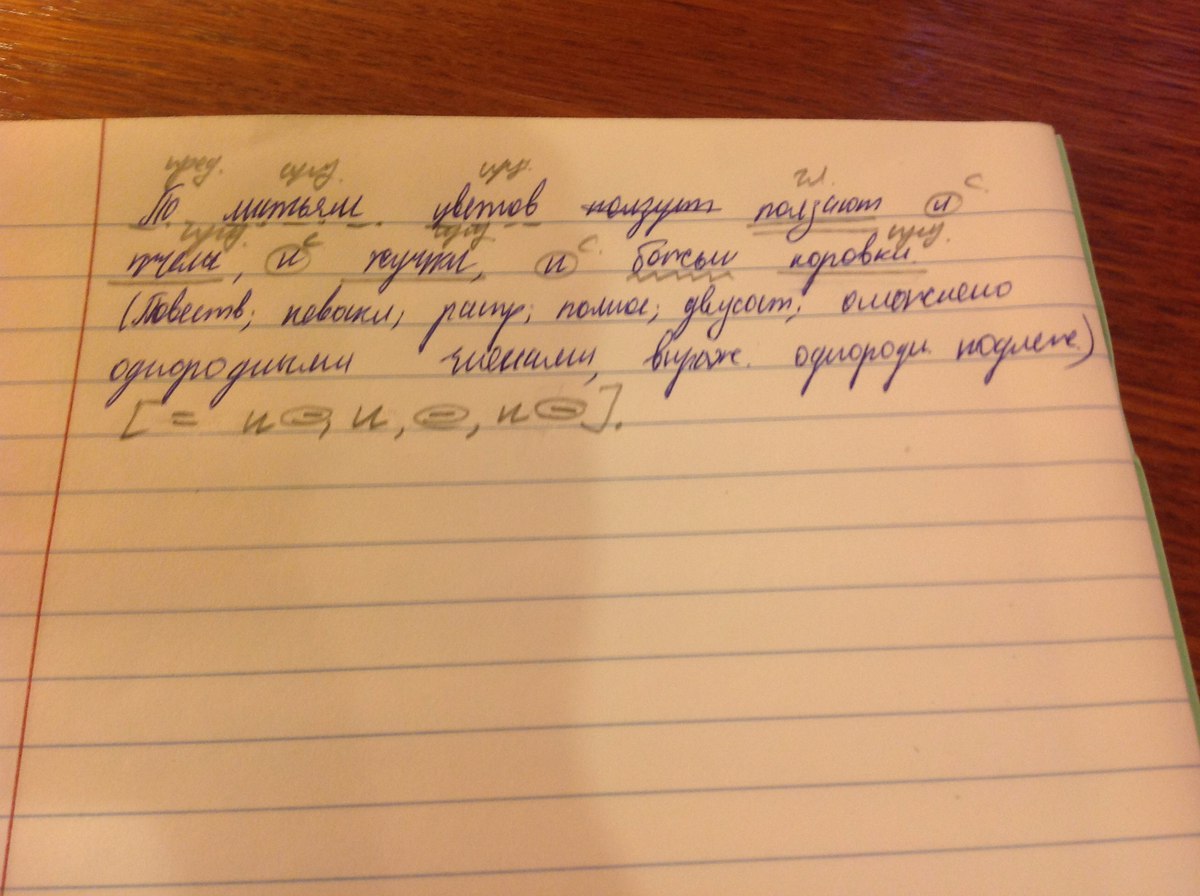 пред. сущ. сущ. гл. с.
По листьям цветов ползут ползают и
сущ. с сущ. с. сущ.
пчелы, и жучки, и божьи коровки.
(Повеств; невоскл; распр; полное; двусост; осложнено
однородными членами, выраж. однородн. подлеж.)
[= и ⊖, и, ⊖, и ⊖].